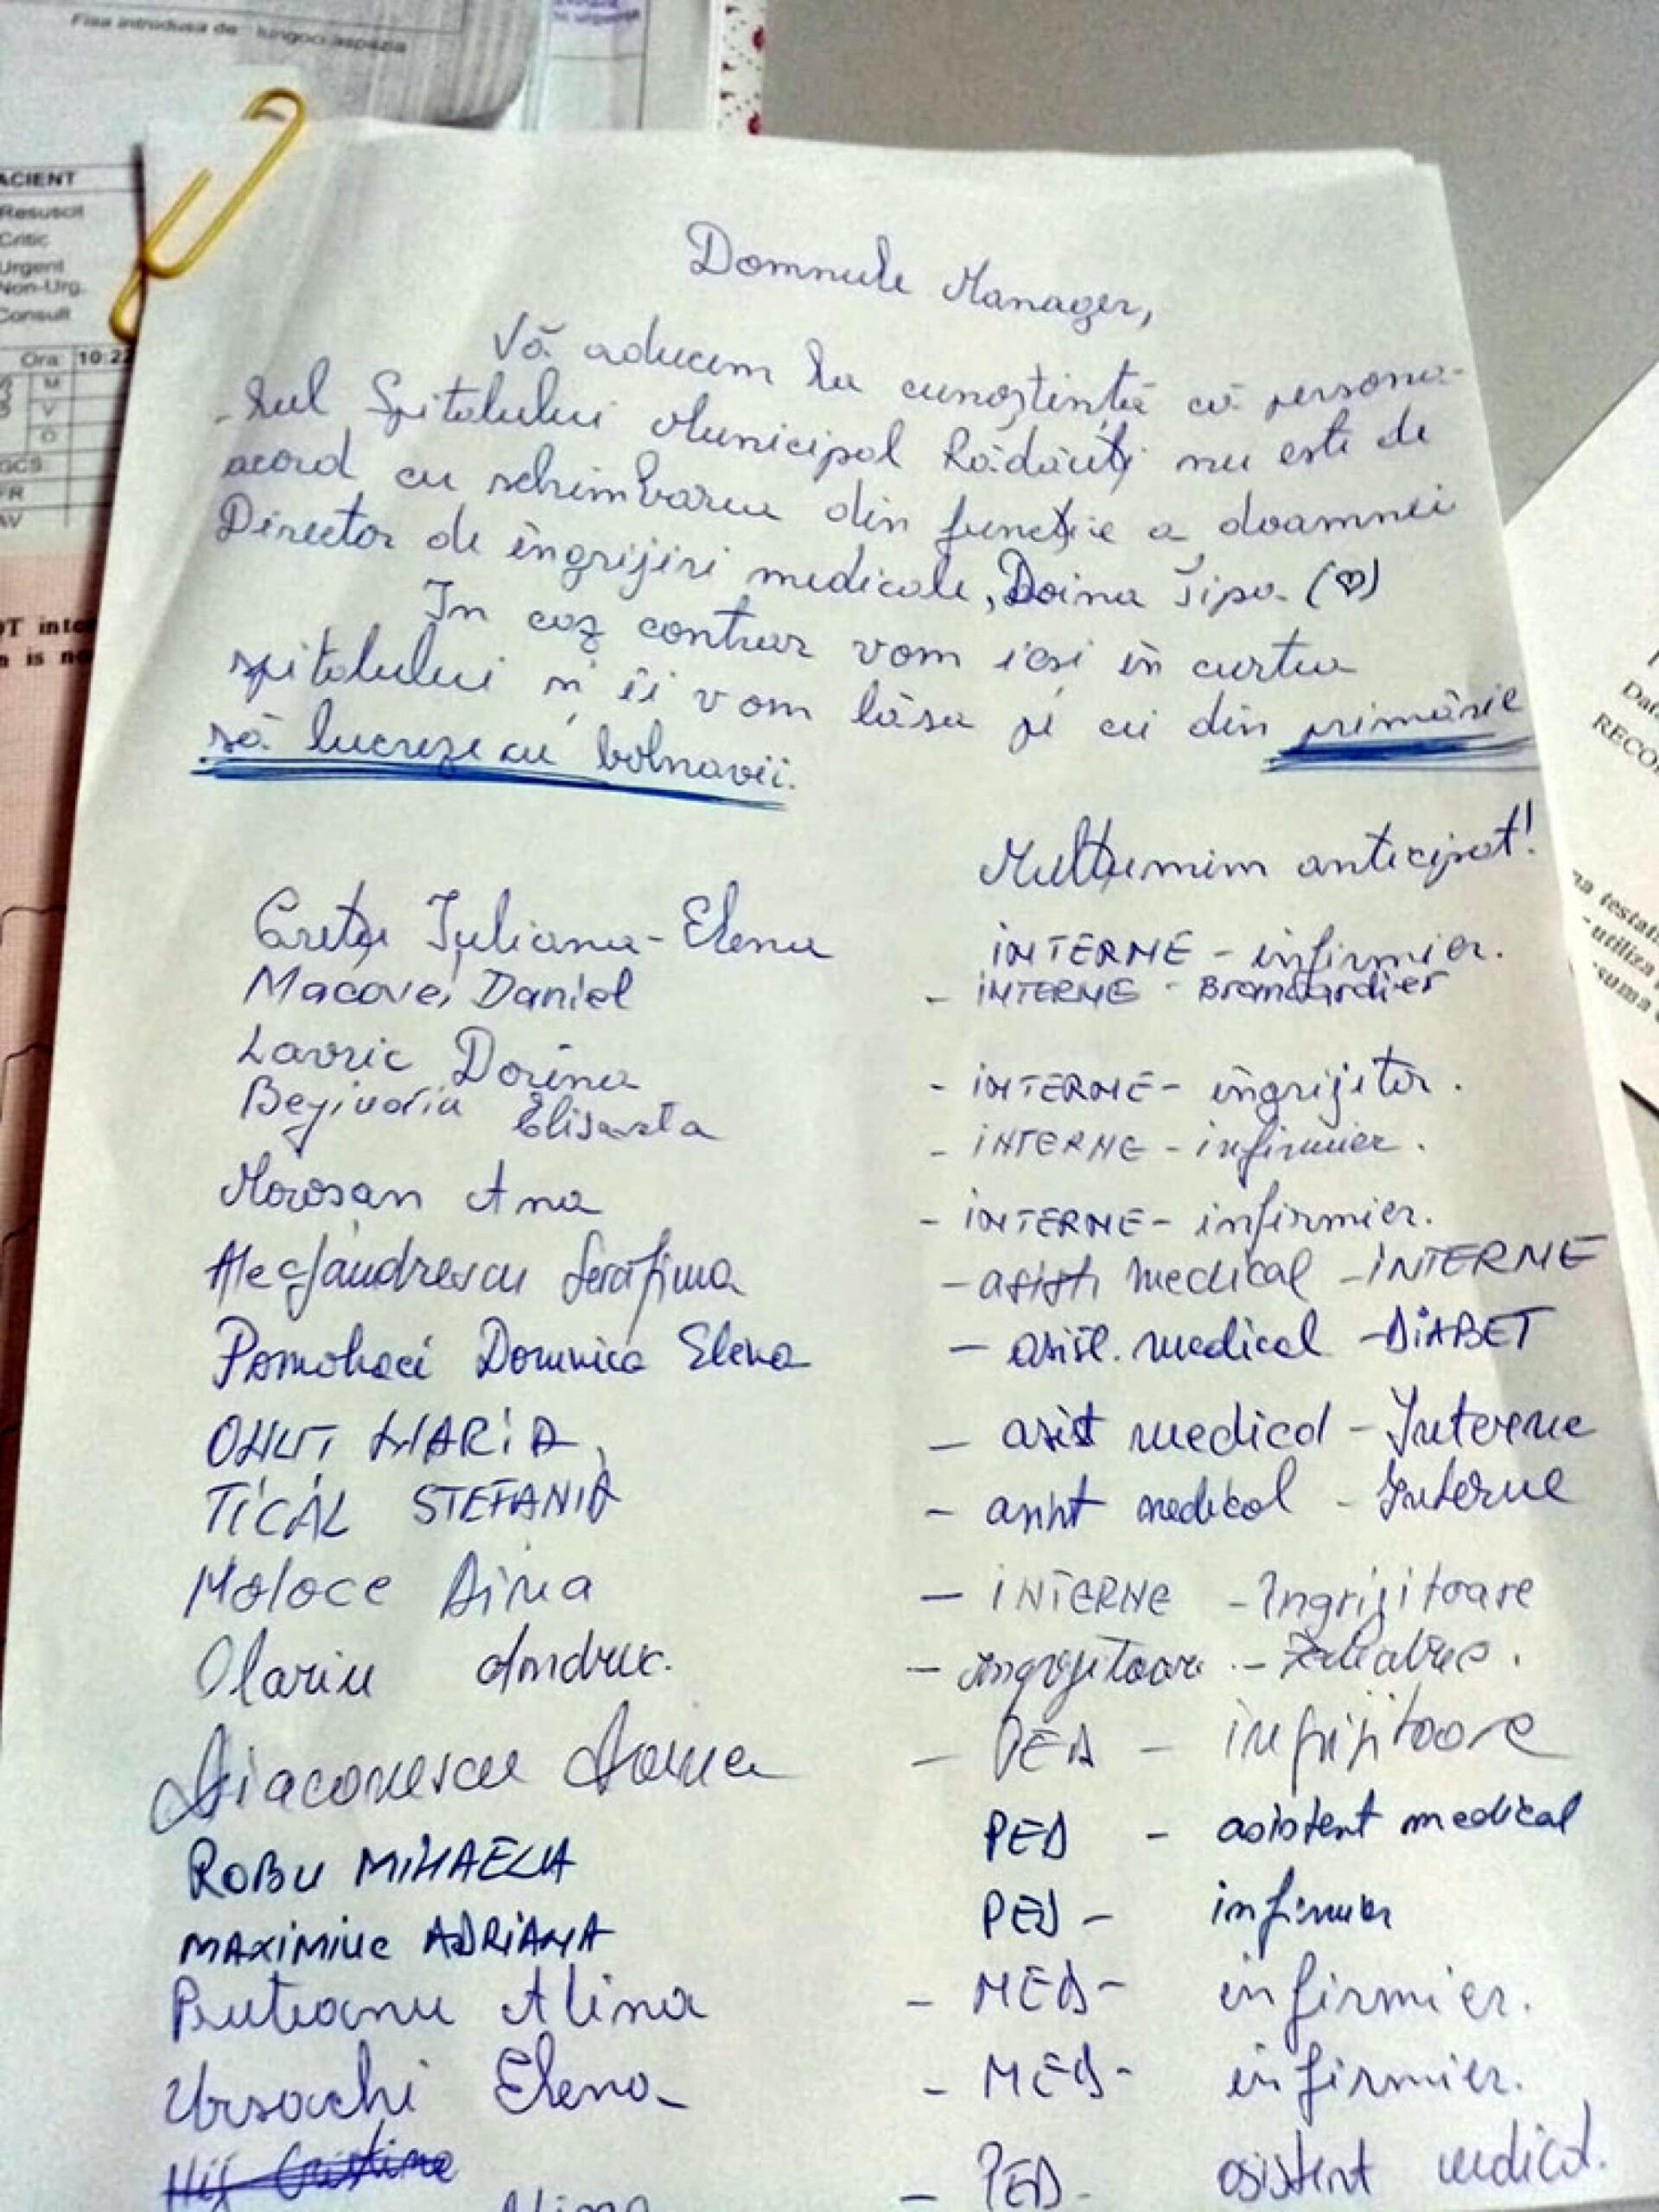 Fisa introdusa de: lungoci aspazia
ACIENT
Resuscit
Critic
Urgent
Non-Urg.
Consult
Ora: 10:22
M
V
O
GCS
FR
AV
OT inte
n is no
Domnule Manager,
Vă aducem la cunoștință că persona-
-lul Spitalului Municipal Rădăuți nu este de
acord cu schimbarea din funcție a doamnei
Director de îngrijiri medicale, Doina Țipa. (♡)
In caz contrar vom iesi în curtea
spitalului și îi vom lăsa pe cei din primărie
să lucreze cu bolnavii.
Mulțumim anticipat!
Crețu Iuliana-Elena INTERNE - infirmier.
Macovei Daniel - INTERNE - Brancardier
Lavric Dorina - INTERNE - îngrijitor.
Elisaveta - INTERNE - infirmier.
Moroșan Ana - INTERNE - infirmier.
Alecsandrescu Serafima - asist. medical - INTERNE
Pomohaci Domnica Elena - asist. medical - DIABET
MARIA - asist medical - Interne
TICAL STEFANIA - asist medical - Interne
Moloce Dina - INTERNE - Ingrijitoare
Olariu - ingrijitoare - Pediatrie.
Diaconescu Doina - PED - ingrijitoare
ROBU MIHAELA PED - asistent medical
MAXIMIUC ADRIANA PED - infirmier
Puteanu Alina - MED - infirmier.
Ursachi Elena - MED - infirmier.
Cristina - PED - asistent medical.
Alina
Data
RECO
testat
utiliza
suma